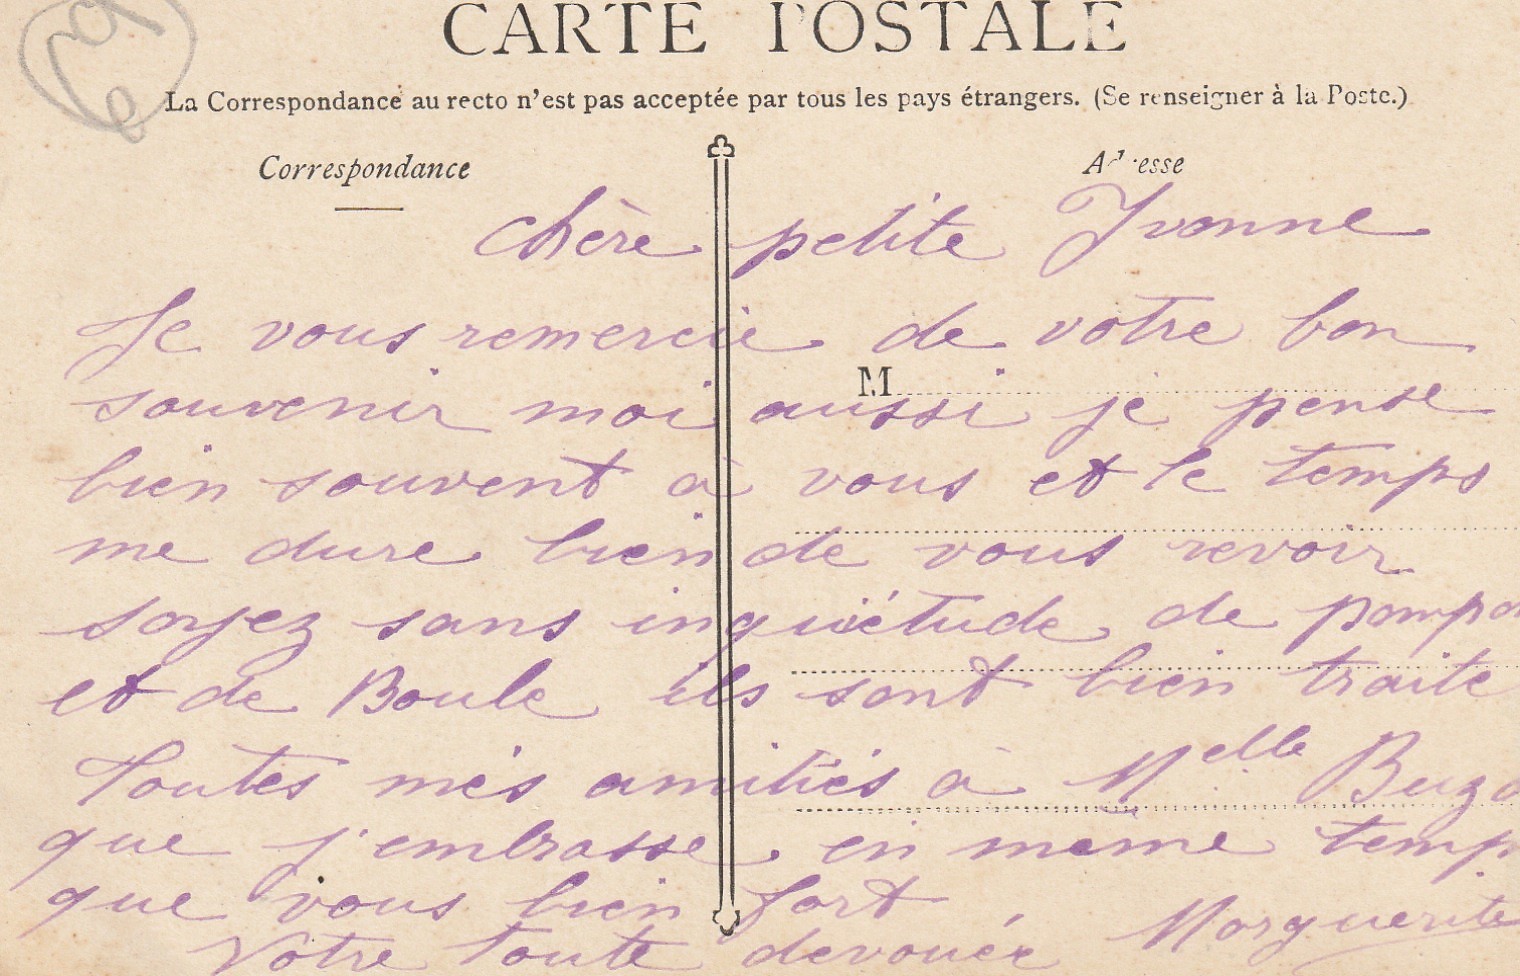 CARTE POSTALE
La Correspondance au recto n'est pas acceptée par tous les pays étrangers. (Se renseigner à la Poste.)
Correspondance
Adresse
M
chère petite Yvonne
Je vous remercie de votre bon
souvenir moi aussi je pense
bien souvent à vous et le temps
me dure bien de vous revoir
soyez sans inquiétude de
et de Boule ils sont bien traite
Toutes més amitiés à Melle
que j'embrasse en même temp
que vous bien fort
Votre toute dévouée Marguerite